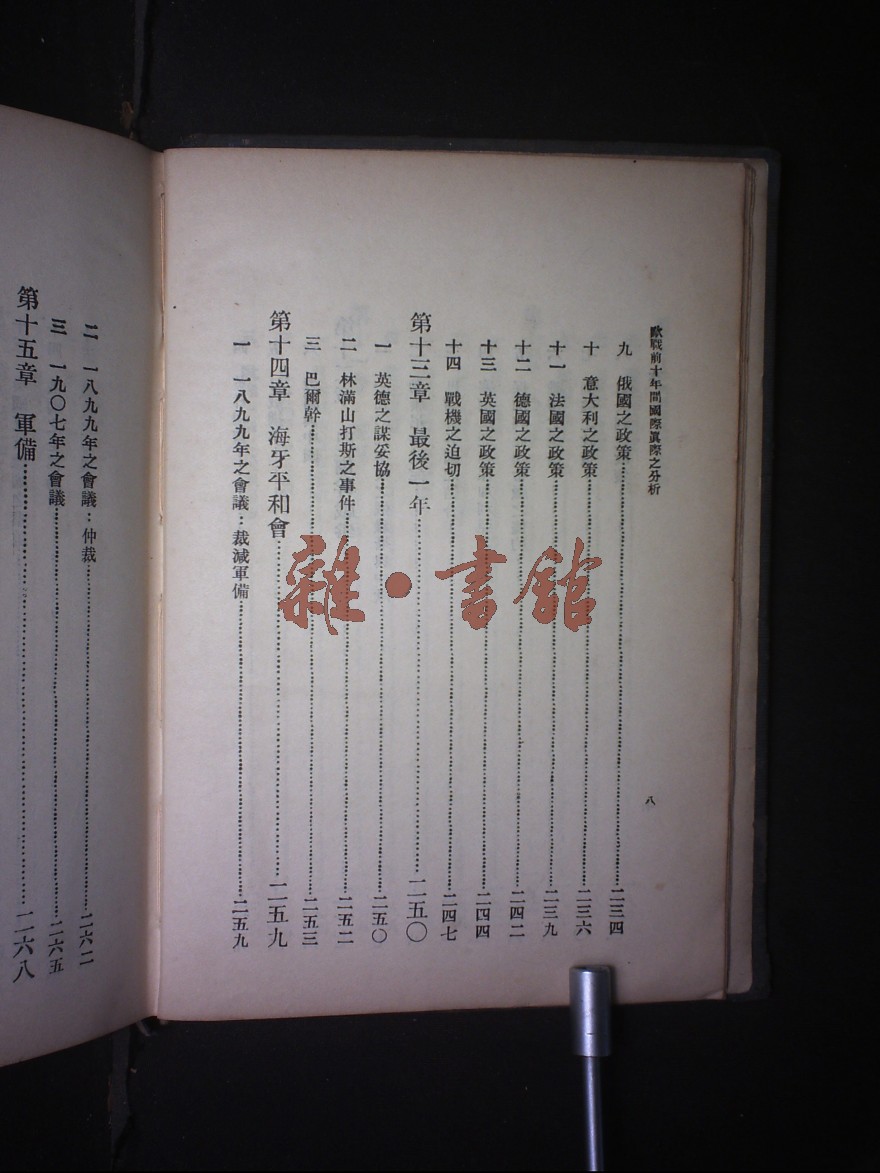 歐戰前十年間國際眞際之分析
八
九　俄國之政策……二三四
十　意大利之政策……二三六
十一　法國之政策……二三九
十二　德國之政策……二四二
十三　英國之政策……二四四
十四　戰機之迫切……二四七
第十三章　最後一年……二五〇
一　英德之謀妥協……二五〇
二　林滿山打斯之事件……二五二
三　巴爾幹……二五三
第十四章　海牙平和會……二五九
一　一八九九年之會議：裁減軍備……二五九
二　一八九九年之會議：仲裁……二六二
三　一九〇七年之會議……二六五
第十五章　軍備……二六八
雜·書館